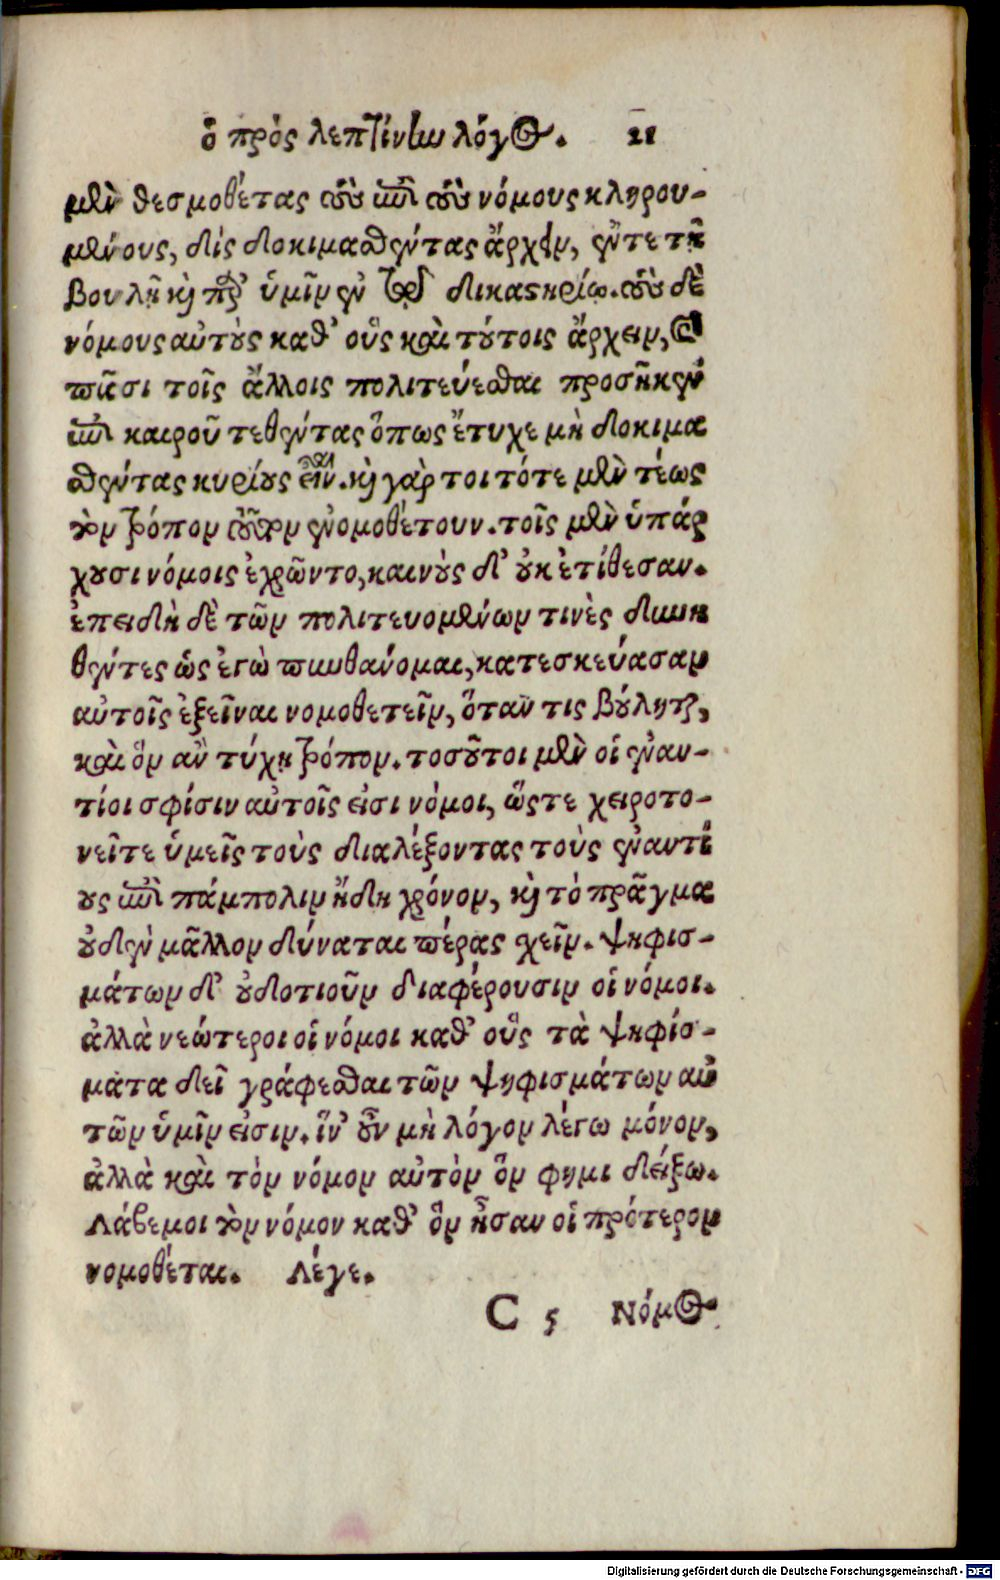 ὁ πρὸς λεπτίνην λόγος. 21
μὲν θεσμοθέτας τοὺς ἐπὶ τοὺς νόμους κληρου-
μένους, δὶς δοκιμασθέντας ἄρχειν, ἔντε τῇ
βουλῇ καὶ παρ' ὑμῖν ἐν τῷ δικαστηρίῳ. τοὺς δὲ
νόμους αὐτοὺς καθ' οὓς καὶ τούτοις ἄρχειν, καὶ
πᾶσι τοῖς ἄλλοις πολιτεύεσθαι προσῆκεν
ἐπὶ καιροῦ τεθέντας ὅπως ἔτυχε μὴ δοκιμα
σθέντας κυρίους εἶναι. καὶ γάρ τοι τότε μὲν τέως
τὸν τρόπον τοῦτον ἐνομοθέτουν. τοῖς μὲν ὑπάρ
χουσι νόμοις ἐχρῶντο, καινοὺς δ' οὐκ ἐτίθεσαν.
ἐπειδὴ δὲ τῶν πολιτευομένων τινὲς δυνη
θέντες ὡς ἐγὼ πυνθάνομαι, κατεσκεύασαν
αὐτοῖς ἐξεῖναι νομοθετεῖν, ὅταν τις βούληται,
καὶ ὃν ἂν τύχῃ τρόπον. τοσοῦτοι μὲν οἱ ἐναν-
τίοι σφίσιν αὐτοῖς εἰσι νόμοι, ὥστε χειροτο-
νεῖτε ὑμεῖς τοὺς διαλέξοντας τοὺς ἐναντί
ους ἐπὶ πάμπολιν ἤδη χρόνον, καὶ τὸ πρᾶγμα
οὐδὲν μᾶλλον δύναται πέρας σχεῖν. ψηφισ-
μάτων δ' οὐδοτιοῦν διαφέρουσιν οἱ νόμοι.
ἀλλὰ νεώτεροι οἱ νόμοι καθ' οὓς τὰ ψηφίσ-
ματα δεῖ γράφεσθαι τῶν ψηφισμάτων αὐ
τῶν ὑμῖν εἰσιν. ἵν' οὖν μὴ λόγον λέγω μόνον,
ἀλλὰ καὶ τὸν νόμον αὐτὸν ὅν φημι δείξω.
Λάβεμοι τὸν νόμον καθ' ὃν ἦσαν οἱ πρότερον
νομοθέται. Λέγε.
C 5 Νόμος
Digitalisierung gefördert durch die Deutsche Forschungsgemeinschaft - DFG